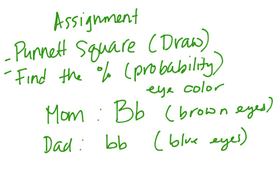 Assignment
- Punnett Square (Draw)
- Find the % (probability)
eye color
Mom : Bb (brown eyes)
Dad : bb (blue eyes)